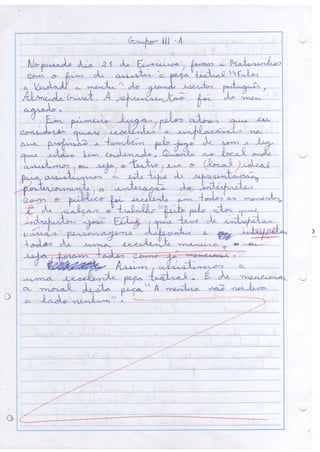 Grupo III - A
No passado dia 21 de Fevereiro, fomos a Matosinhos
com o fim de assistir à peça teatral "Falar
a Verdade a mentir" do grande escritor português,
Almeida Garret. A representação foi do meu
agrado.
Em primeiro lugar, pelos atores que eu
considerei quase excelentes e implacáveis na
sua profissão e também pelo jogo de som e luz
que estava bem coordenado. Quanto ao local onde
assistimos, ou seja, o teatro, era o local ideal
para assistirmos a este tipo de representação,
Posteriormente, a interação do intérpretes
com o público foi excelente em todos os momentos.
É de realçar o trabalho feito pelo ator que
interpretou José Félix, que teve de interpretar
várias personagens diferentes e
todas de uma excelente maneira, ou
seja, foram todas como já mencionei.
Assim, assistimos a
uma excelente peça teatral. É de mencionar
a moral desta peça "A mentira não nos leva
a lado nenhum".